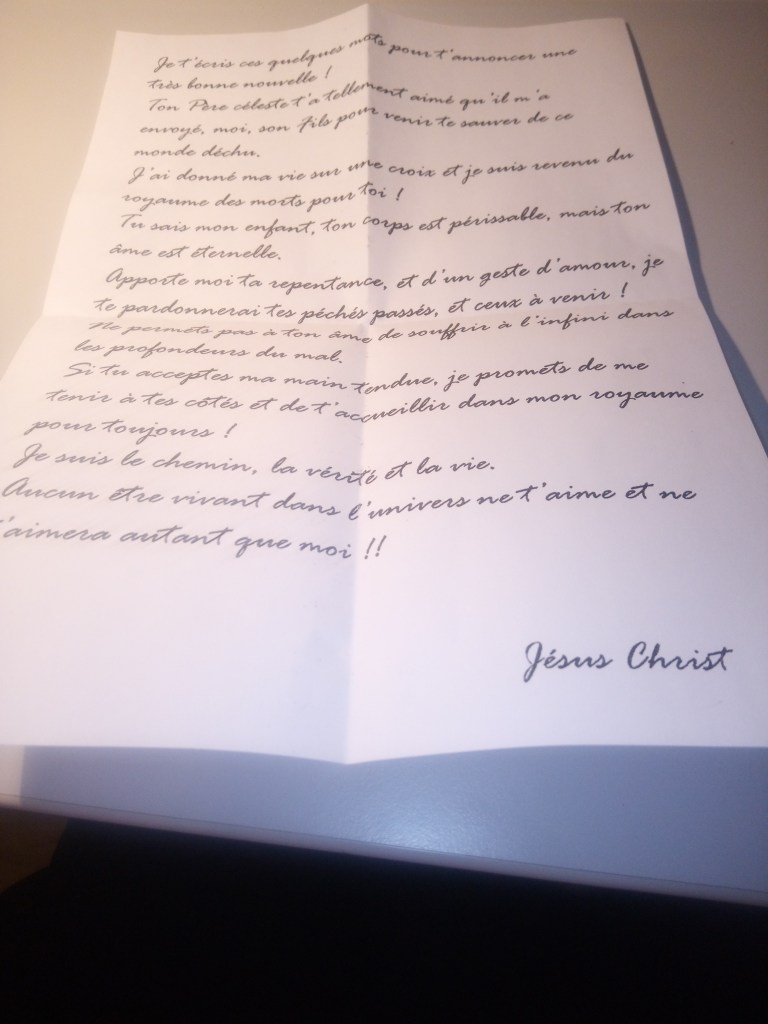 Je t'écris ces quelques mots pour t'annoncer une
très bonne nouvelle !
Ton Père céleste t'a tellement aimé qu'il m'a
envoyé, moi, son Fils pour venir te sauver de ce
monde déchu.
J'ai donné ma vie sur une croix et je suis revenu du
royaume des morts pour toi !
Tu sais mon enfant, ton corps est périssable, mais ton
âme est éternelle.
Apporte moi ta repentance, et d'un geste d'amour, je
te pardonnerai tes péchés passés, et ceux à venir !
Ne permets pas à ton âme de souffrir à l'infini dans
les profondeurs du mal.
Si tu acceptes ma main tendue, je promets de me
tenir à tes côtés et de t'accueillir dans mon royaume
pour toujours !
Je suis le chemin, la vérité et la vie.
Aucun être vivant dans l'univers ne t'aime et ne
t'aimera autant que moi !!
Jésus Christ